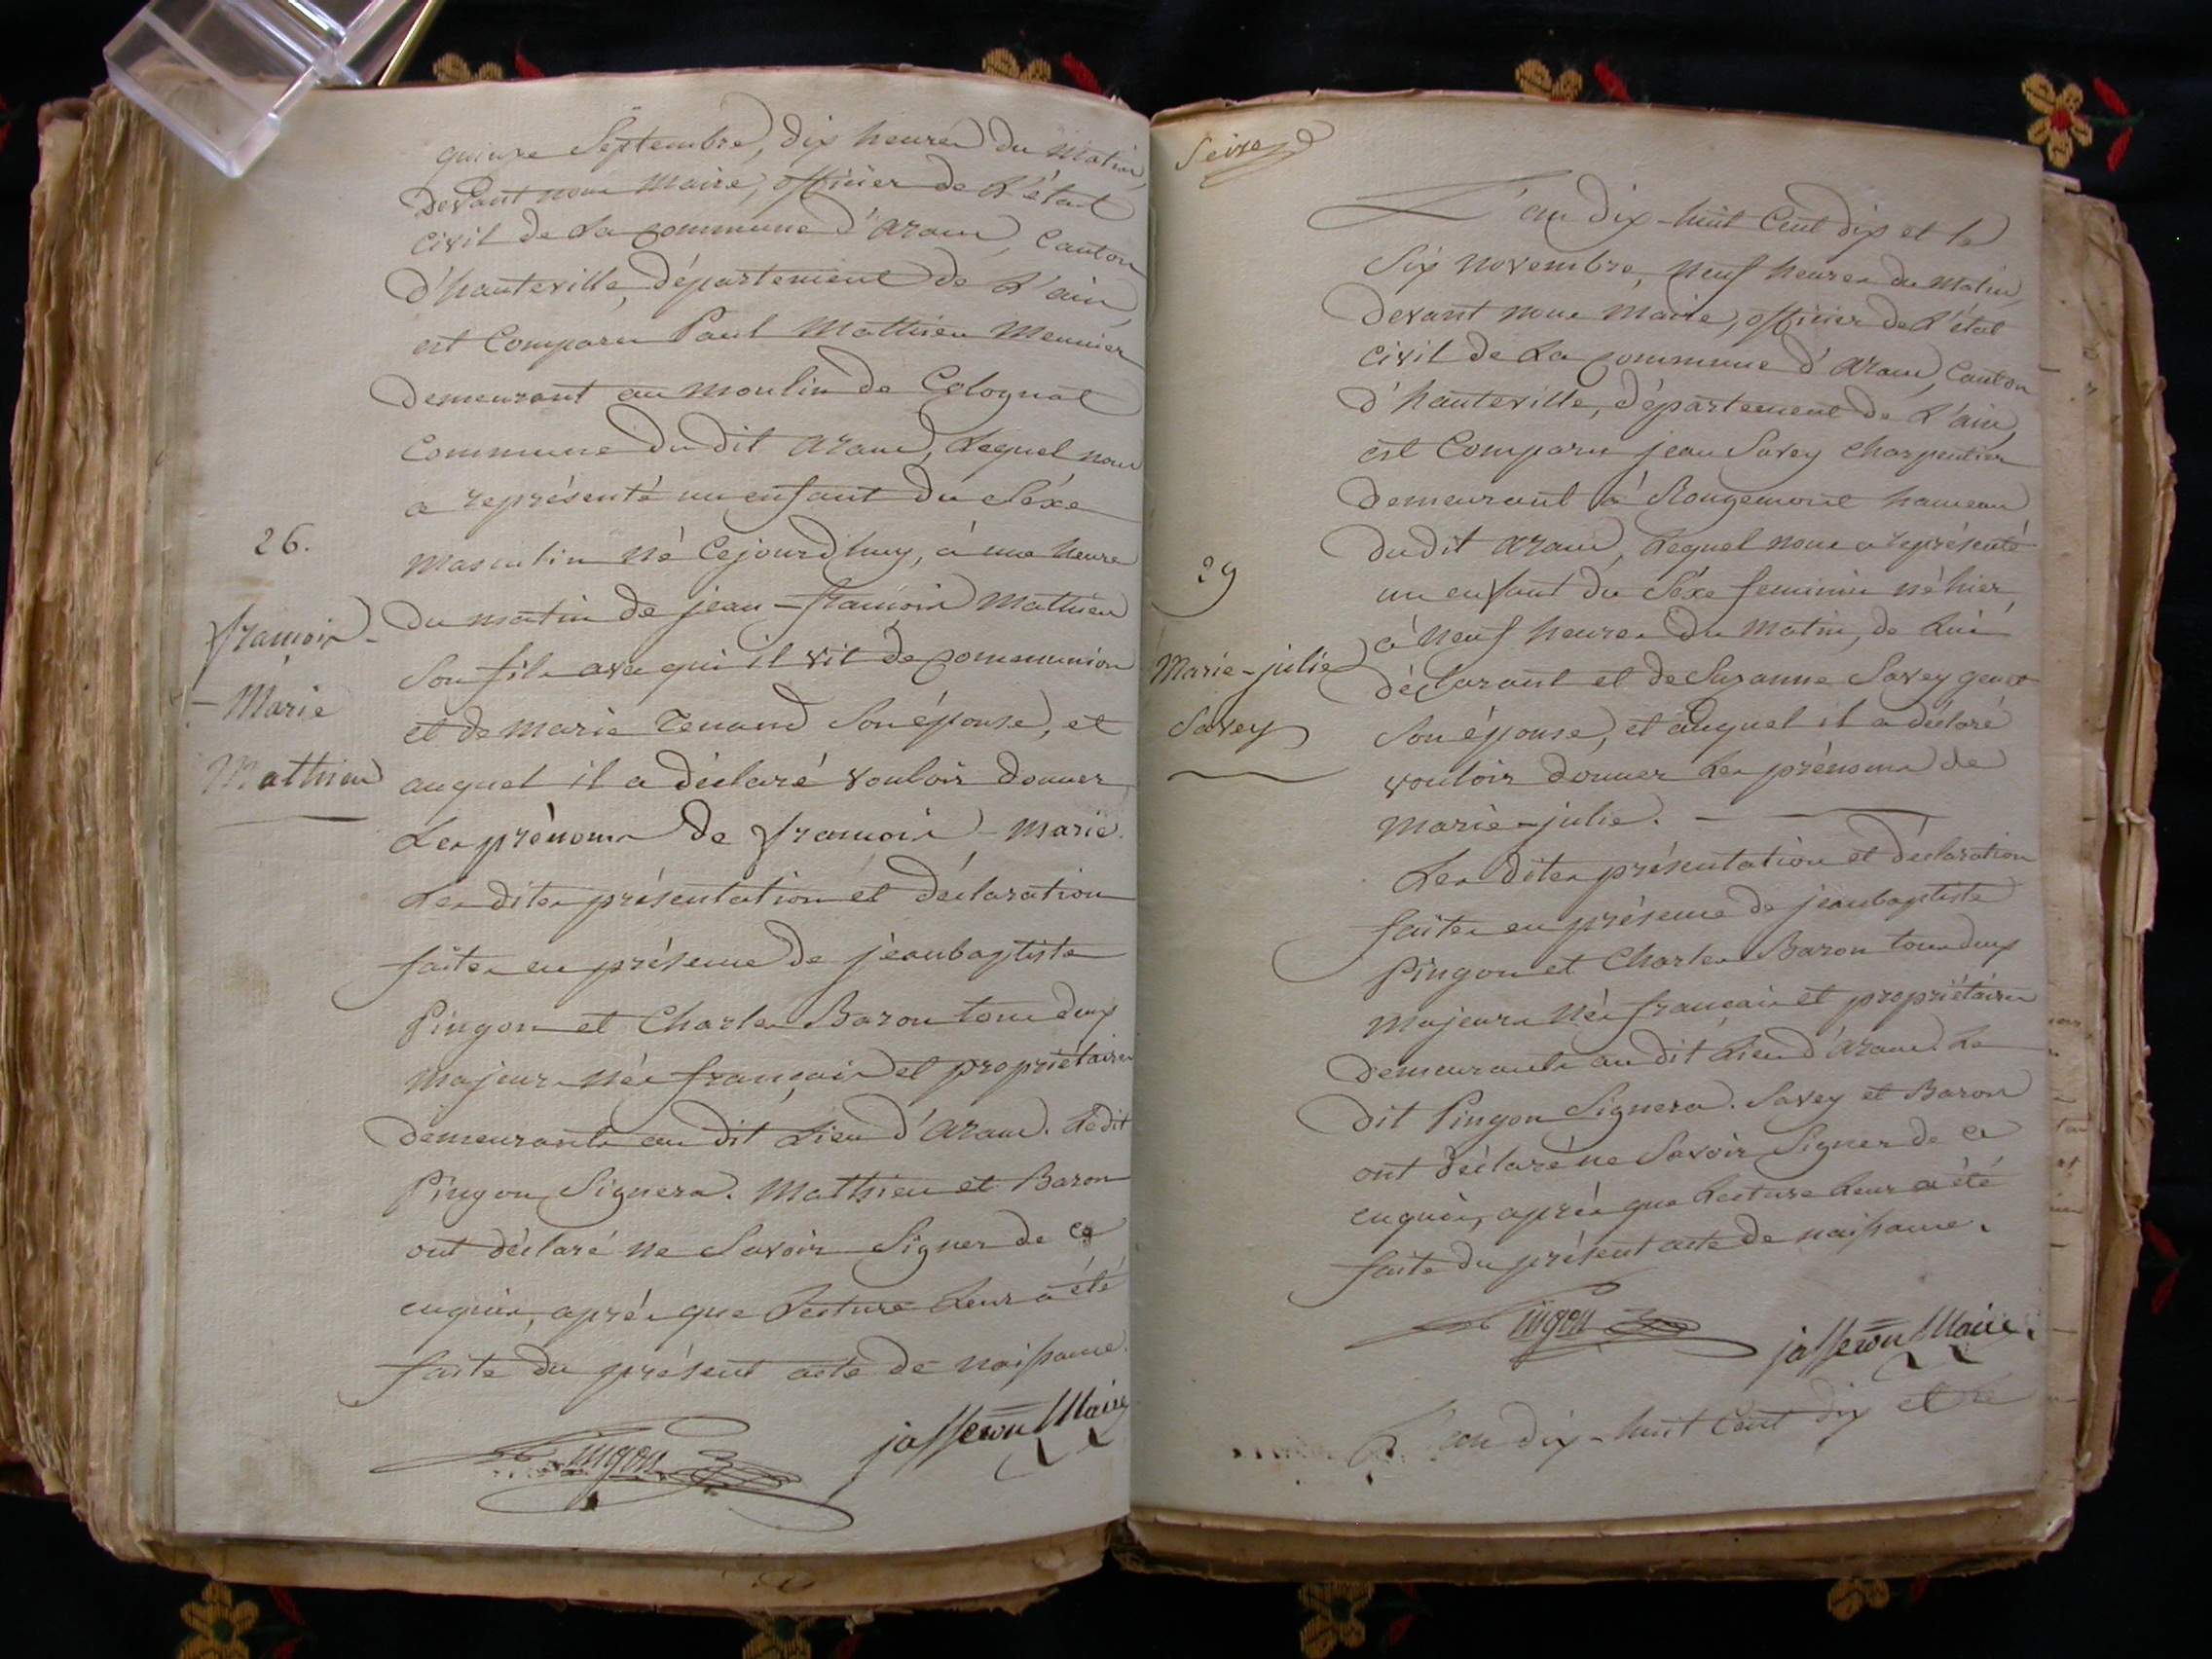 quinze Septembre, dix heures du matin,
devant nous maire, officier de L'état
civil de La commune d'aranc, Canton
d'hauteville, département de L'ain,
est Comparu Paul Mathieu Meunier
demeurant au moulin de Colognat
Commune du dit aranc, Lequel nous
a représenté un enfant du Séxe
masculin né Cejourdhuy, à une heure
du matin de jean-françois mathieu
Son fils avec qui il vit de communion
et de marie Tenand Son épouse, et
auquel il a déclaré vouloir donner
Les prénoms de françois-marie.
Les dites présentation et déclaration
faites en présence de jeanbaptiste
Pingon et Charles Baron tous deux
majeurs Nés français et propriétaires
demeurants au dit Lieu d'aranc. Le dit
Pingon Signera. Mathieu et Baron
ont déclaré ne Savoir Signer de ce
enquis, après que Lecture Leur a été
faite du présent acte de naissance.
Pingon
jasseron Maire
26.
françois-
-Marie
Mathieu
Seize
L'an dix-huit Cent dix et le
Six novembre, neuf heures du matin,
devant nous maire, officier de L'état
civil de La commune d'aranc, Canton
d'hauteville, département de L'ain,
est Comparu jean Savey charpentier
demeurant à Rougemont hameau
du dit aranc, Lequel nous a représenté
un enfant du Séxe feminin né hier,
à neuf heures du matin, de Lui
déclarant et de Suzanne Savey genet
Son épouse, et auquel il a déclaré
vouloir donner Les prénoms de
marie-julie.
Les dites présentation et déclaration
faites en présence de jeanbaptiste
Pingon et Charles Baron tous deux
majeurs Nés français et propriétaires
demeurants au dit Lieu d'aranc. Le
dit Pingon Signera. Savey et Baron
ont déclaré ne Savoir Signer de ce
enquis, après que Lecture Leur a été
faite du présent acte de naissance.
Pingon
jasseron Maire.
L'an dix-huit Cent dix et le
29
Marie-julie
Savey